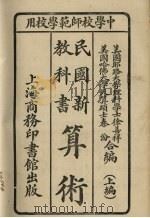 中學校師範學校用
美國耶路大學理科學士徐善祥
美國哈佛大學
碩士秦汾
合編
上編
民國新
教科書
算術
上海商務印書館出版